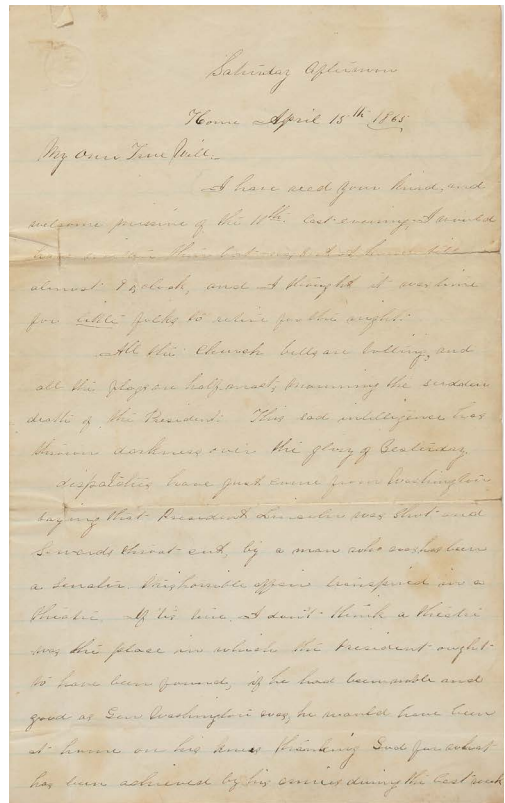 Saturday Afternoon
Home April 15th 1865
My Own True Will
I have recd your kind, and
welcome missive of the 11th last evening, I would
till
almost 9 oclock, and I thought it was time
for little folks to retire for the night.
All the Church bells are tolling, and
all the flags are half mast, mourning the sudden
death of the President. This sad intelligence has
thrown darkness over the glory of Yesterday,
dispatches have just come from Washington
saying that President Lincoln was shot and
Sewards throat cut, by a man who has been
a Senator. This horrible affair transpired in a
theatre. If tis true I don't think a theatre
was the place in which the President ought
to have been found, if he had been noble and
good as Gen Washington was, he would have been
at home on his knees thanking God for what
has been achieved by his armies during the last week